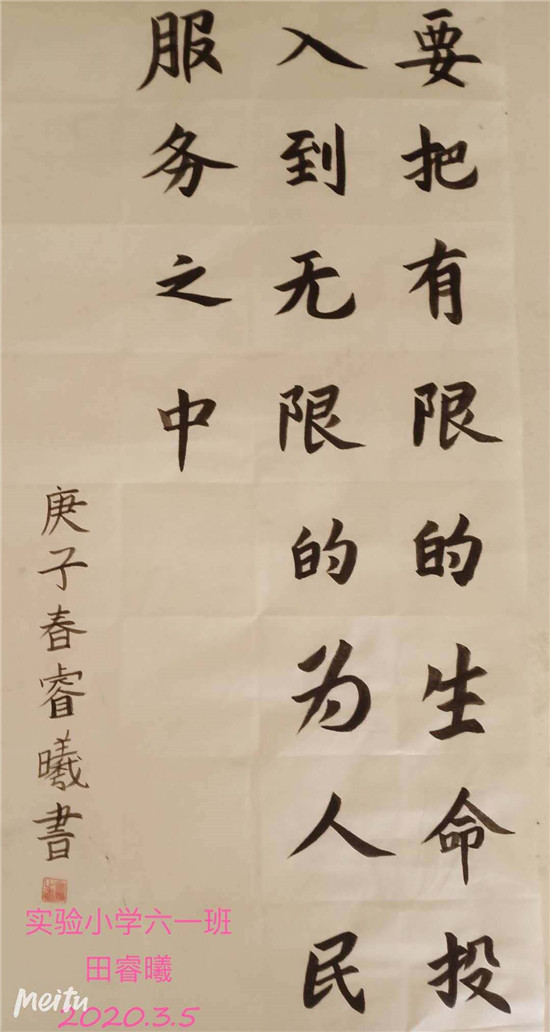 要把有限的生命投
入到无限的为人民
服务之中
庚子春睿曦書
实验小学六一班
田睿曦
meitu
2020.3.5